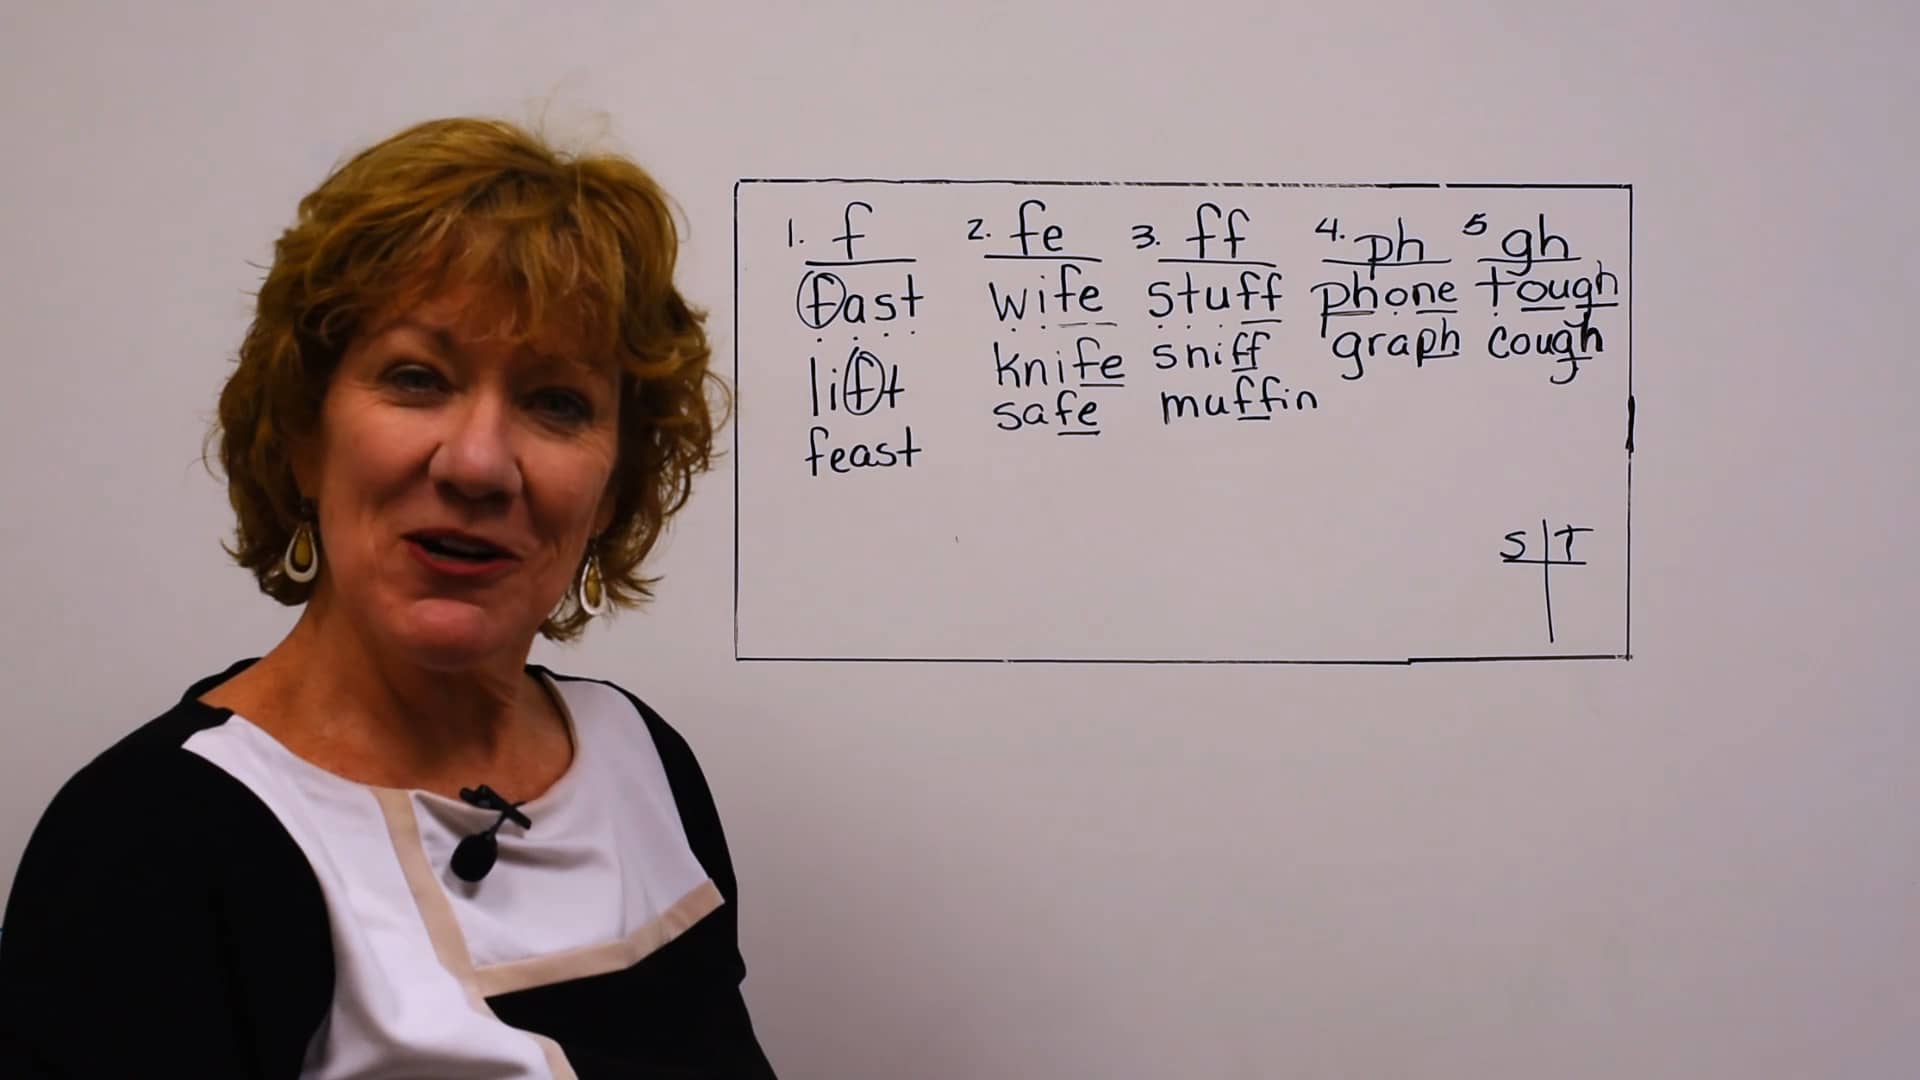 1. f 2. fe 3. ff 4. ph 5 gh
fast wife stuff phone tough
lift knife sniff graph cough
feast safe muffin
S T